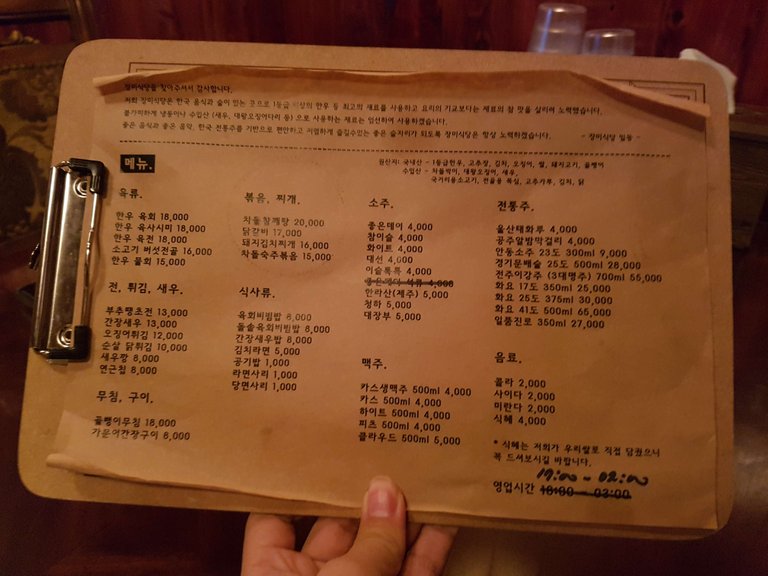 장미식당을 찾아주셔서 감사합니다.
저희 장미식당은 한국 음식과 술이 있는 곳으로 1등급 이상의 한우 등 최고의 재료를 사용하고 요리의 기교보다는 재료의 참 맛을 살리려 노력했습니다.
불가피하게 냉동이나 수입산 (새우, 대왕오징어다리 등) 으로 사용하는 재료는 엄선하여 사용하였습니다.
좋은 음식과 좋은 음악, 한국 전통주를 기반으로 편안하고 저렴하게 즐길수있는 좋은 술자리가 되도록 장미식당은 항상 노력하겠습니다.
- 장미식당 일동 -
메뉴.
원산지: 국내산 - 1등급한우, 고추장, 김치, 오징어, 쌀, 돼지고기, 골뱅이
수입산 - 차돌박이, 대왕오징어, 새우,
국거리용소고기, 전율용 목심, 고추가루, 김치, 닭
육류.
한우 육회 18,000
한우 육사시미 18,000
한우 육전 18,000
소고기 버섯전골 16,000
한우 물회 15,000
전, 튀김, 새우.
부추땡초전 13,000
간장새우 13,000
오징어튀김 12,000
순살 닭튀김 10,000
새우깡 8,000
연근칩 8,000
무침, 구이.
골뱅이무침 18,000
가문어간장구이 8,000
볶음, 찌개.
차돌참깨탕 20,000
닭갈비 17,000
돼지김치찌개 16,000
차돌숙주볶음 15,000
식사류.
육회비빔밥 8,000
돌솥육회비빔밥 8,000
간장새우밥 8,000
김치라면 5,000
공기밥 1,000
라면사리 1,000
당면사리 1,000
소주.
좋은데이 4,000
참이슬 4,000
화이트 4,000
대선 4,000
이슬톡톡 4,000
좋은데이 석류 4,000
한라산(제주) 5,000
청하 5,000
대장부 5,000
맥주.
카스생맥주 500ml 4,000
카스 500ml 4,000
하이트 500ml 4,000
피츠 500ml 4,000
클라우드 500ml 5,000
전통주.
울산태화루 4,000
공주알밤막걸리 4,000
안동소주 23도 300ml 9,000
경기문배술 25도 500ml 28,000
전주이강주 (3대명주) 700ml 55,000
화요 17도 350ml 25,000
화요 25도 375ml 30,000
화요 41도 500ml 65,000
일품진로 350ml 27,000
음료.
콜라 2,000
사이다 2,000
미란다 2,000
식혜 4,000
* 식혜는 저희가 우리쌀로 직접 담궜으니
꼭 드셔보시길 바랍니다.
19:00 - 02:00
영업시간 18:00 - 03:00